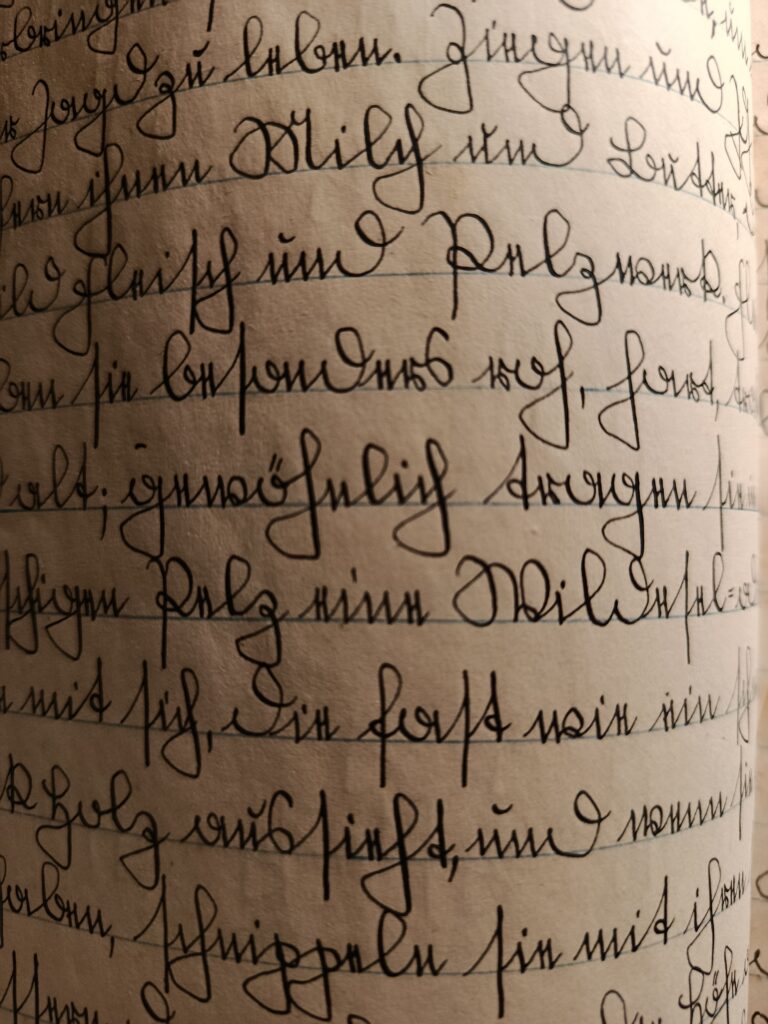 bringen
Jagd zu leben. Ziegen und
fern ihnen Milch und Butter,
ild Fleisch und Pelzwerk.
ben sie besonders roh, hart,
alt; gewöhnlich tragen sie
schigen Pelz eine Wildesel=
mit sich, die fast wie ein
k Holz aussieht, und wenn sie
haben, schnippeln sie mit ihren